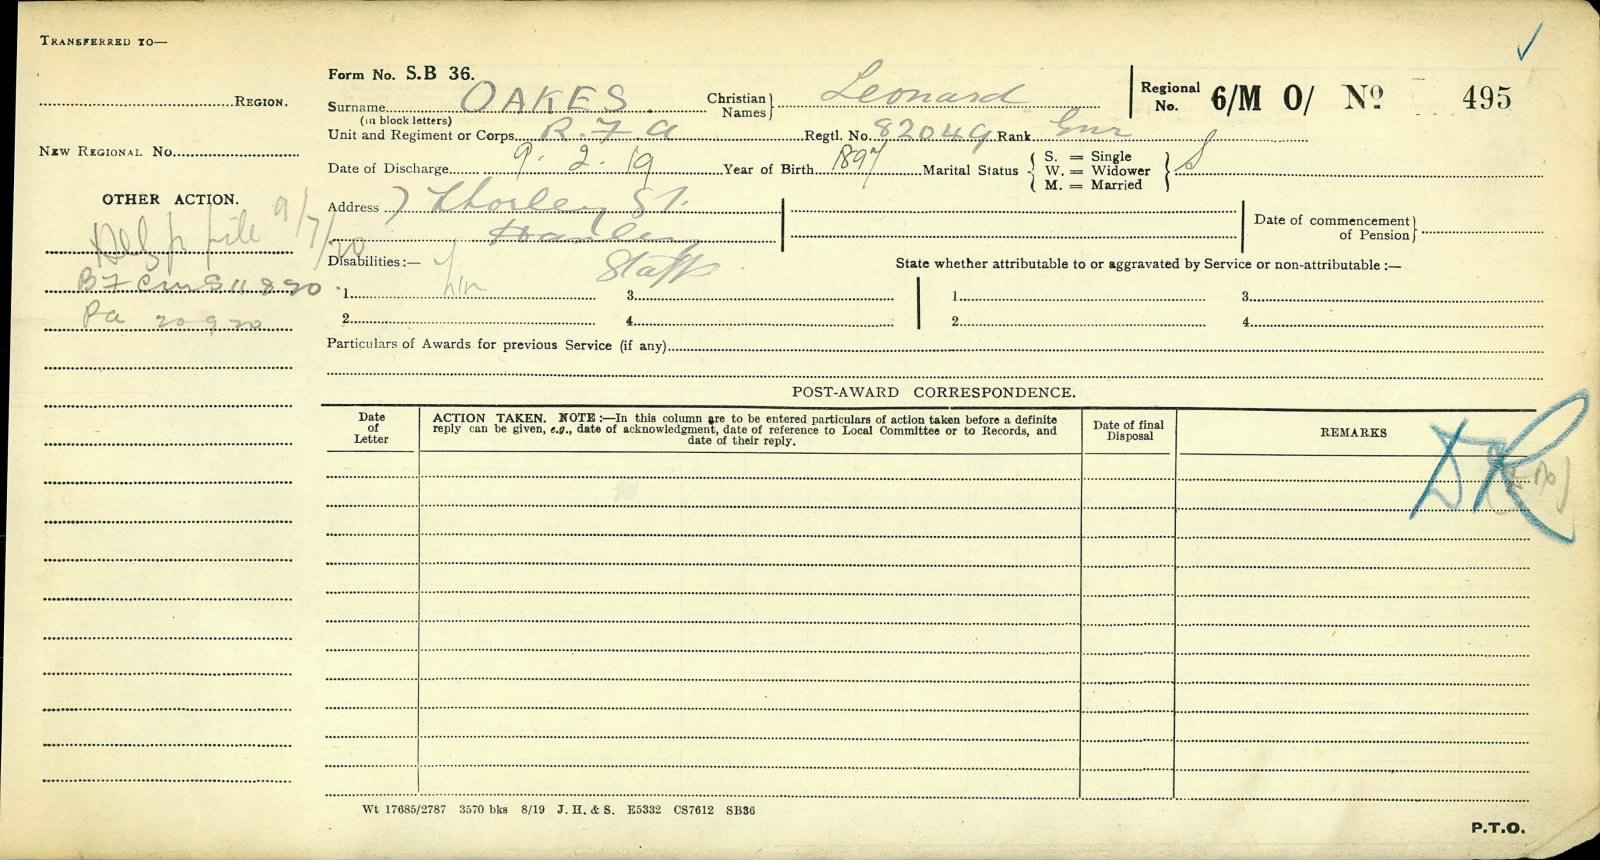 TRANSFERRED TO—
REGION.
NEW REGIONAL No.
OTHER ACTION.
file 9/7/20
B7 Cm S 11 8 20
Pa 20 9 20
Form No. S.B 36.
Surname OAKES Christian Names} Leonard
(in block letters)
Regional No. 6/M O/ No 495
Unit and Regiment or Corps R. F. A Regtl. No. 82049 Rank Gnr
Date of Discharge 9. 2. 19 Year of Birth 1897 Marital Status { S. = Single W. = Widower M. = Married } S
Address 7 Thorley St.
Hanley
Staffs
Date of commencement of Pension}
Disabilities:—
State whether attributable to or aggravated by Service or non-attributable :—
1. 3. 1. 3.
2. 4. 2. 4.
Particulars of Awards for previous Service (if any)
POST-AWARD CORRESPONDENCE.
Date of Letter
ACTION TAKEN. NOTE :—In this column are to be entered particulars of action taken before a definite
reply can be given, e.g., date of acknowledgment, date of reference to Local Committee or to Records, and
date of their reply.
Date of final Disposal
REMARKS
DR
Wt 17685/2787 3570 bks 8/19 J. H. & S. E5332 CS7612 SB36
P.T.O.